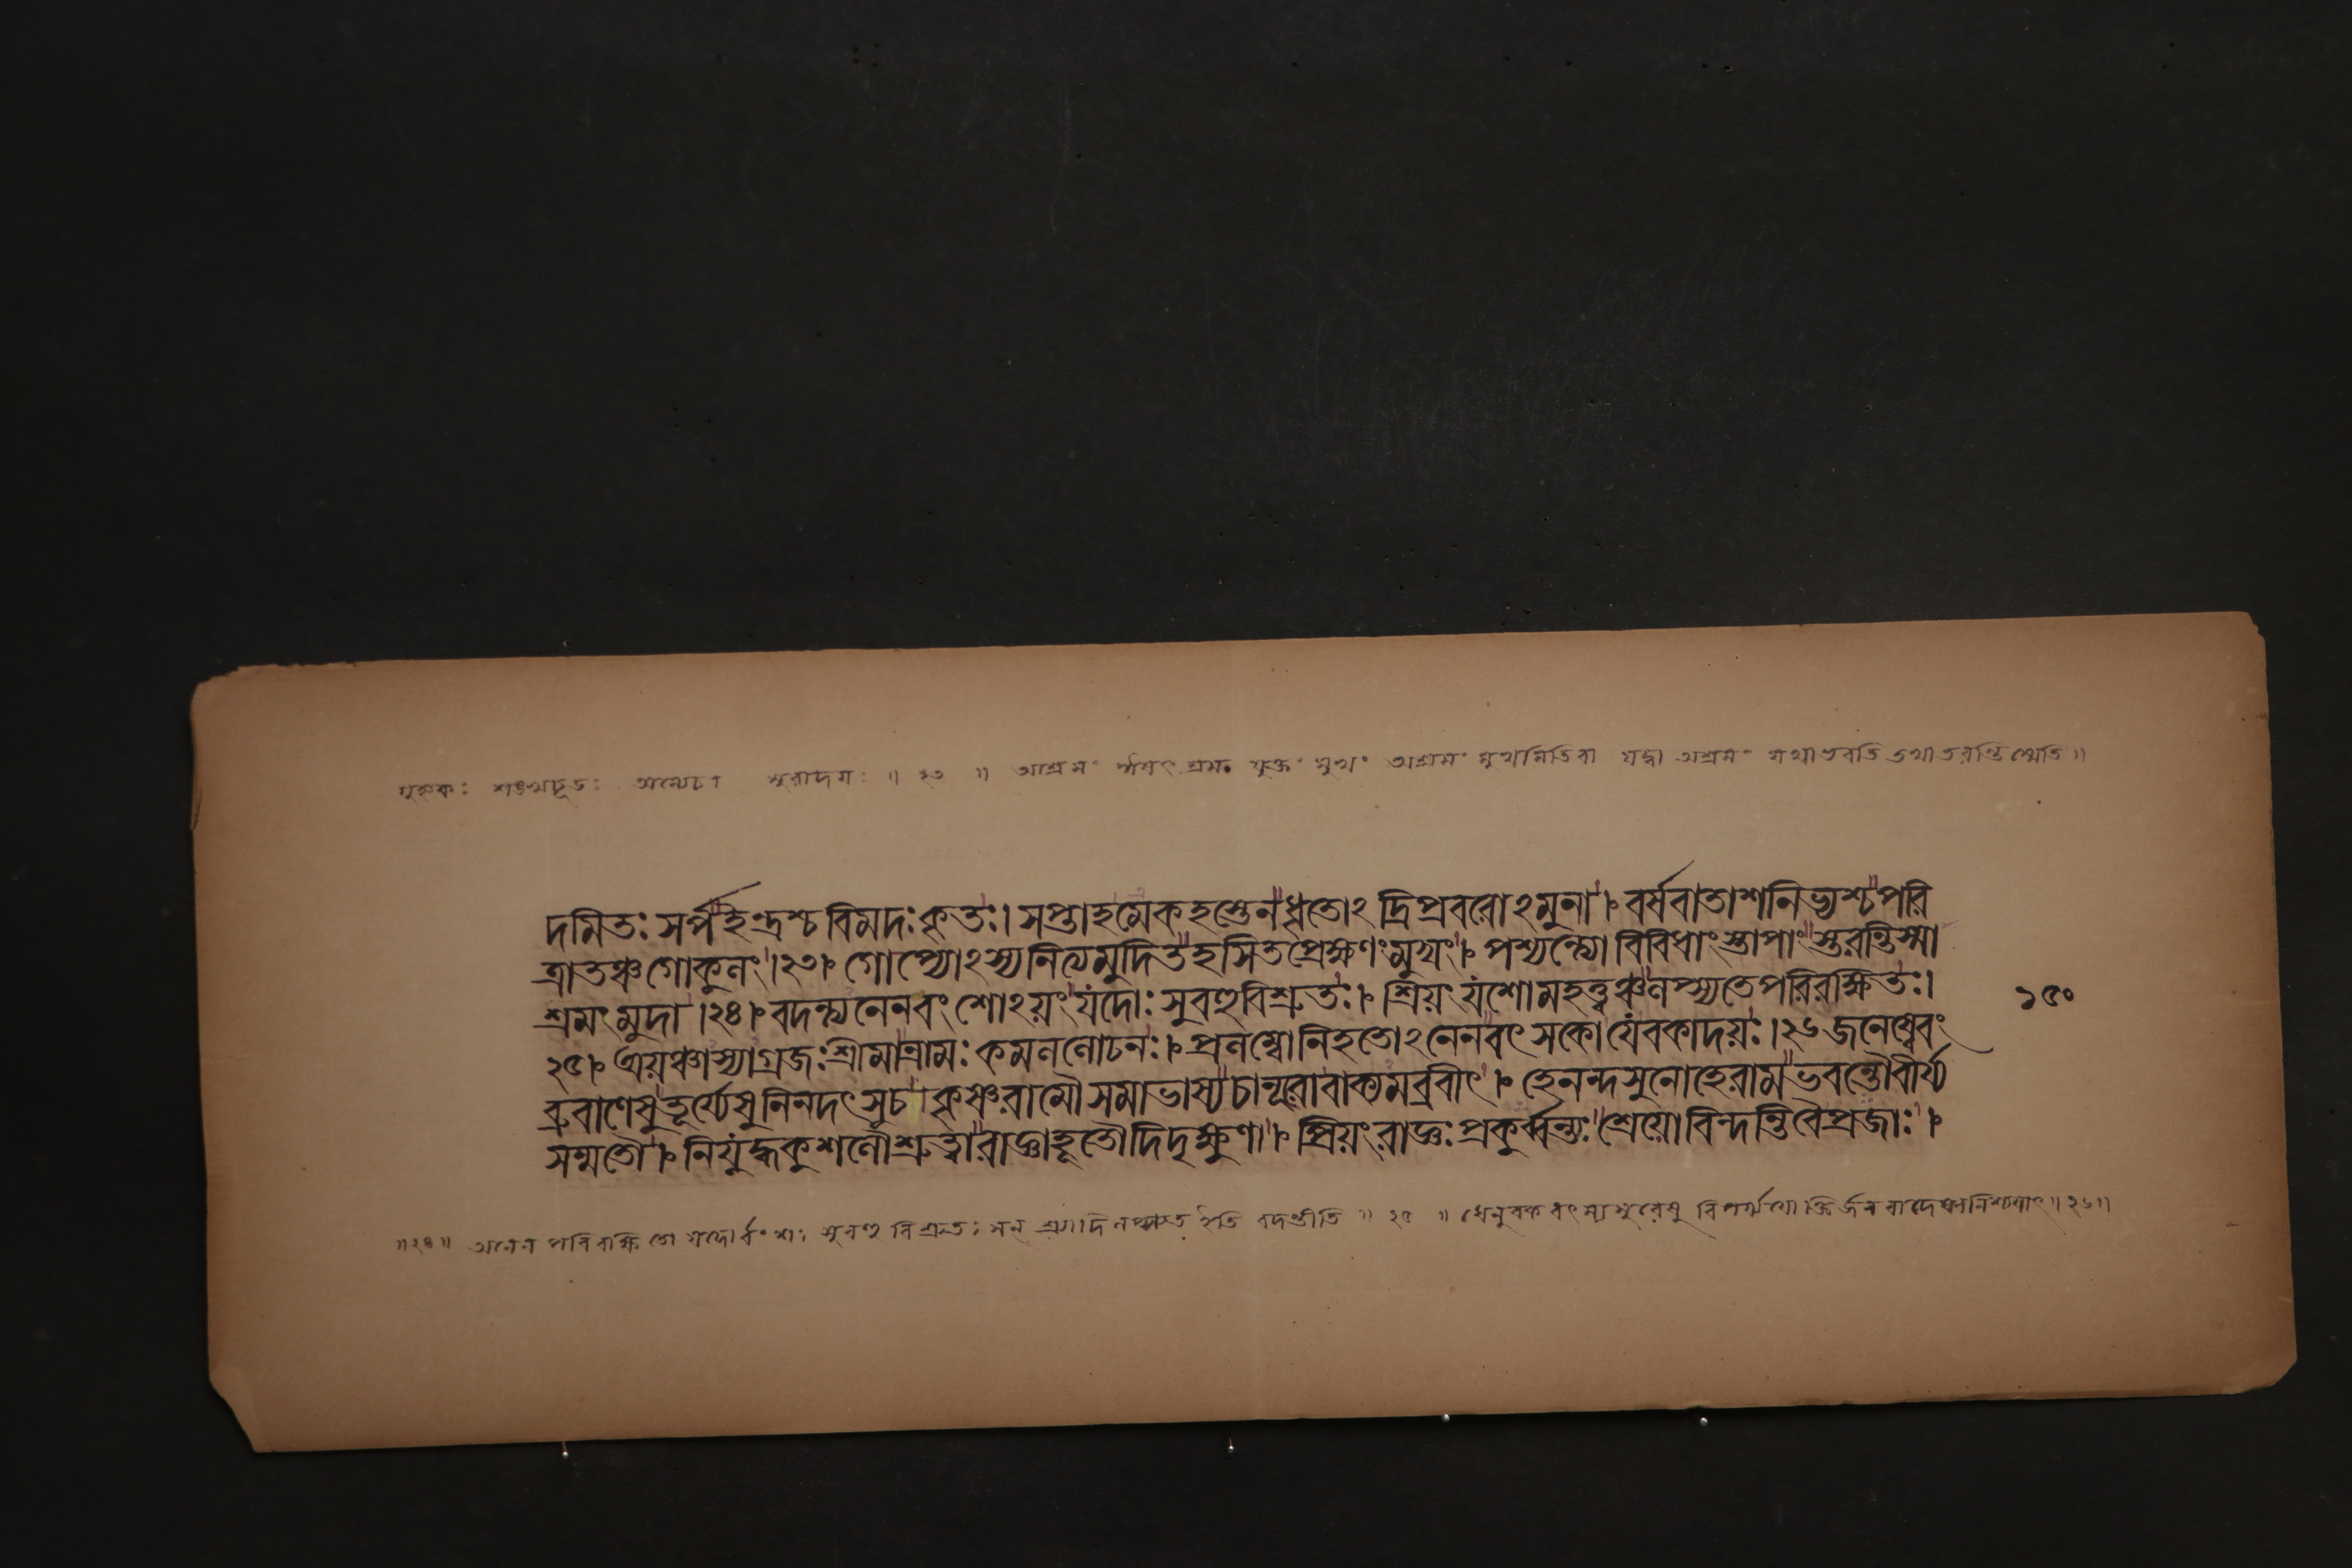 গুহ্যকঃ শঙ্খচূডঃ অন্যেচা সুরাদয়ঃ ॥ ২৩ ॥ আশ্রমং ঈষৎ শ্রম যুক্তং মুখং অশ্রমং মুখমিতিবা যদ্বা অশ্রমং যথাভবতি তথাতরন্তি স্মেতি ॥
দমিতঃ সর্পইন্দ্রশ্চ বিমদঃ কৃতঃ। সপ্তাহমেকহস্তেনধৃতোঽ দ্রিপ্রবরোঽমুনা। বর্ষবাতাশনিভ্যশ্চপরি
ত্রাতঞ্চগোকুলং।২৩। গোপ্যোঽস্যনিত্যমুদিতহসিতপ্রেক্ষণংমুখং। পশ্যন্ত্যো বিবিধাংস্তাপাংস্তরন্তিস্মা
শ্রমংমুদা।২৪। বদন্ত্যনেনবংশোঽয়ংযদোঃ সুবহুবিশ্রুতঃ। শ্রিয়ংযশোমহত্ত্বঞ্চলপ্স্যতেপরিরক্ষিতঃ।
১৫০
২৫। অয়ঞ্চাস্যাগ্রজঃশ্রীমান্রামঃ কমললোচনঃ। প্রলম্বোনিহতোঽনেনবৎসকোযেবকাদয়ঃ।২৬ জনেষ্বেবং
ব্রুবাণেষুতূর্য্যেষুনিনদৎসুচ কৃষ্ণরামৌসমাভাষ্যচাণূরোবাক্যমব্রবীৎ। হেনন্দসুনোহেরামভবন্তৌবীর্য্য
সম্মতৌ। নিযুদ্ধকুশলৌশ্রুত্বারাজ্ঞাহূতৌদিদৃক্ষুণা। প্রিয়ংরাজ্ঞঃপ্রকুর্ব্বন্ত্যঃশ্রেয়োবিন্দন্তিবৈপ্রজাঃ।
॥২৪॥ অনেন পরিরক্ষিতো যদোর্বংশঃ সুবহু বিশ্রুতঃ সন্ শ্রিয়াদি লপ্স্যতে ইতি বদন্তীতি ॥ ২৫ ॥ ধেনুবকবৎসাসুরেষু বিপর্য্যয়োক্তির্জনবাদে নিশ্চয়াৎ॥২৬॥